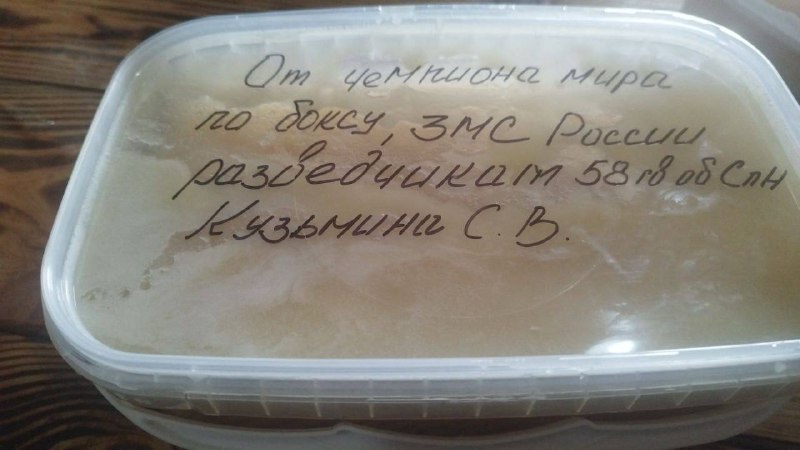 От чемпиона мира
по боксу, ЗМС России
разведчикам 58 гв обСпН
Кузьмина С. В.